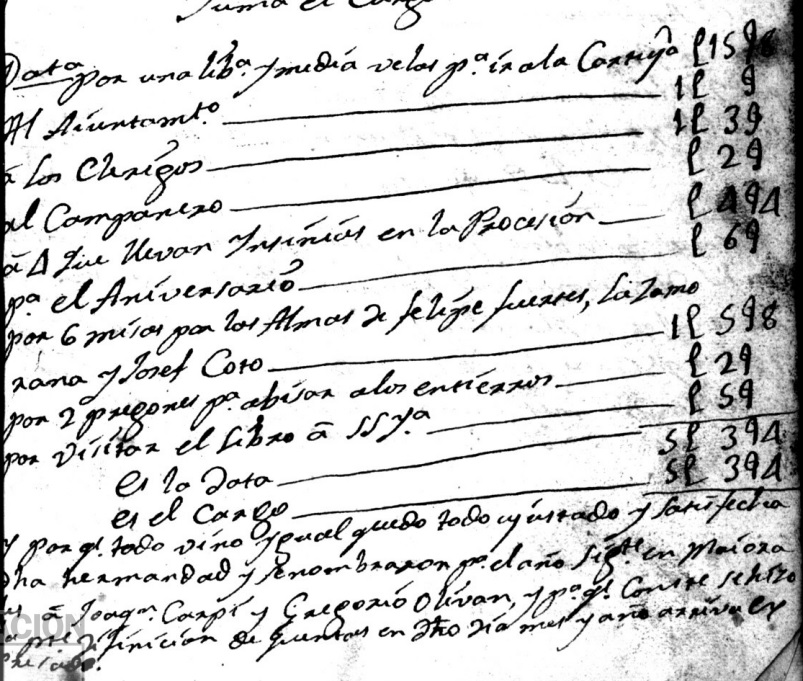 Suma el Cargo
Data por una lib.ª y media velas p.ª ir a la Cartuja l 15 9 8
Al Aiuntam.to 1 l 9
a los Clerigos 1 l 3 9
al Campanero l 2 9
a 4 que llevan Insinias en la Procesión l 4 9 4
p.ª el Aniversario l 6 9
por 6 misas por las Almas de felipe fuertes, la Zamo
rana y Josef Coto 1 l 5 9 8
por 2 pregones p.ª abisar a los entierros l 2 9
por Visitar el Libro a SSy.ª l 5 9
es la Data 5 l 3 9 4
es el Cargo 5 l 3 9 4
y por q.e todo vino ygual quedo todo ajustado y satisfecha
dha hermandad y se nombraron p.ª el año sig.te en Maiora
les a Joaq.n Carpi y Gregorio Olivan, y p.ª q.e Conste se hizo
la pre.te difinicion de quentas en dho dia mes y año arriva ex
presado.
CION